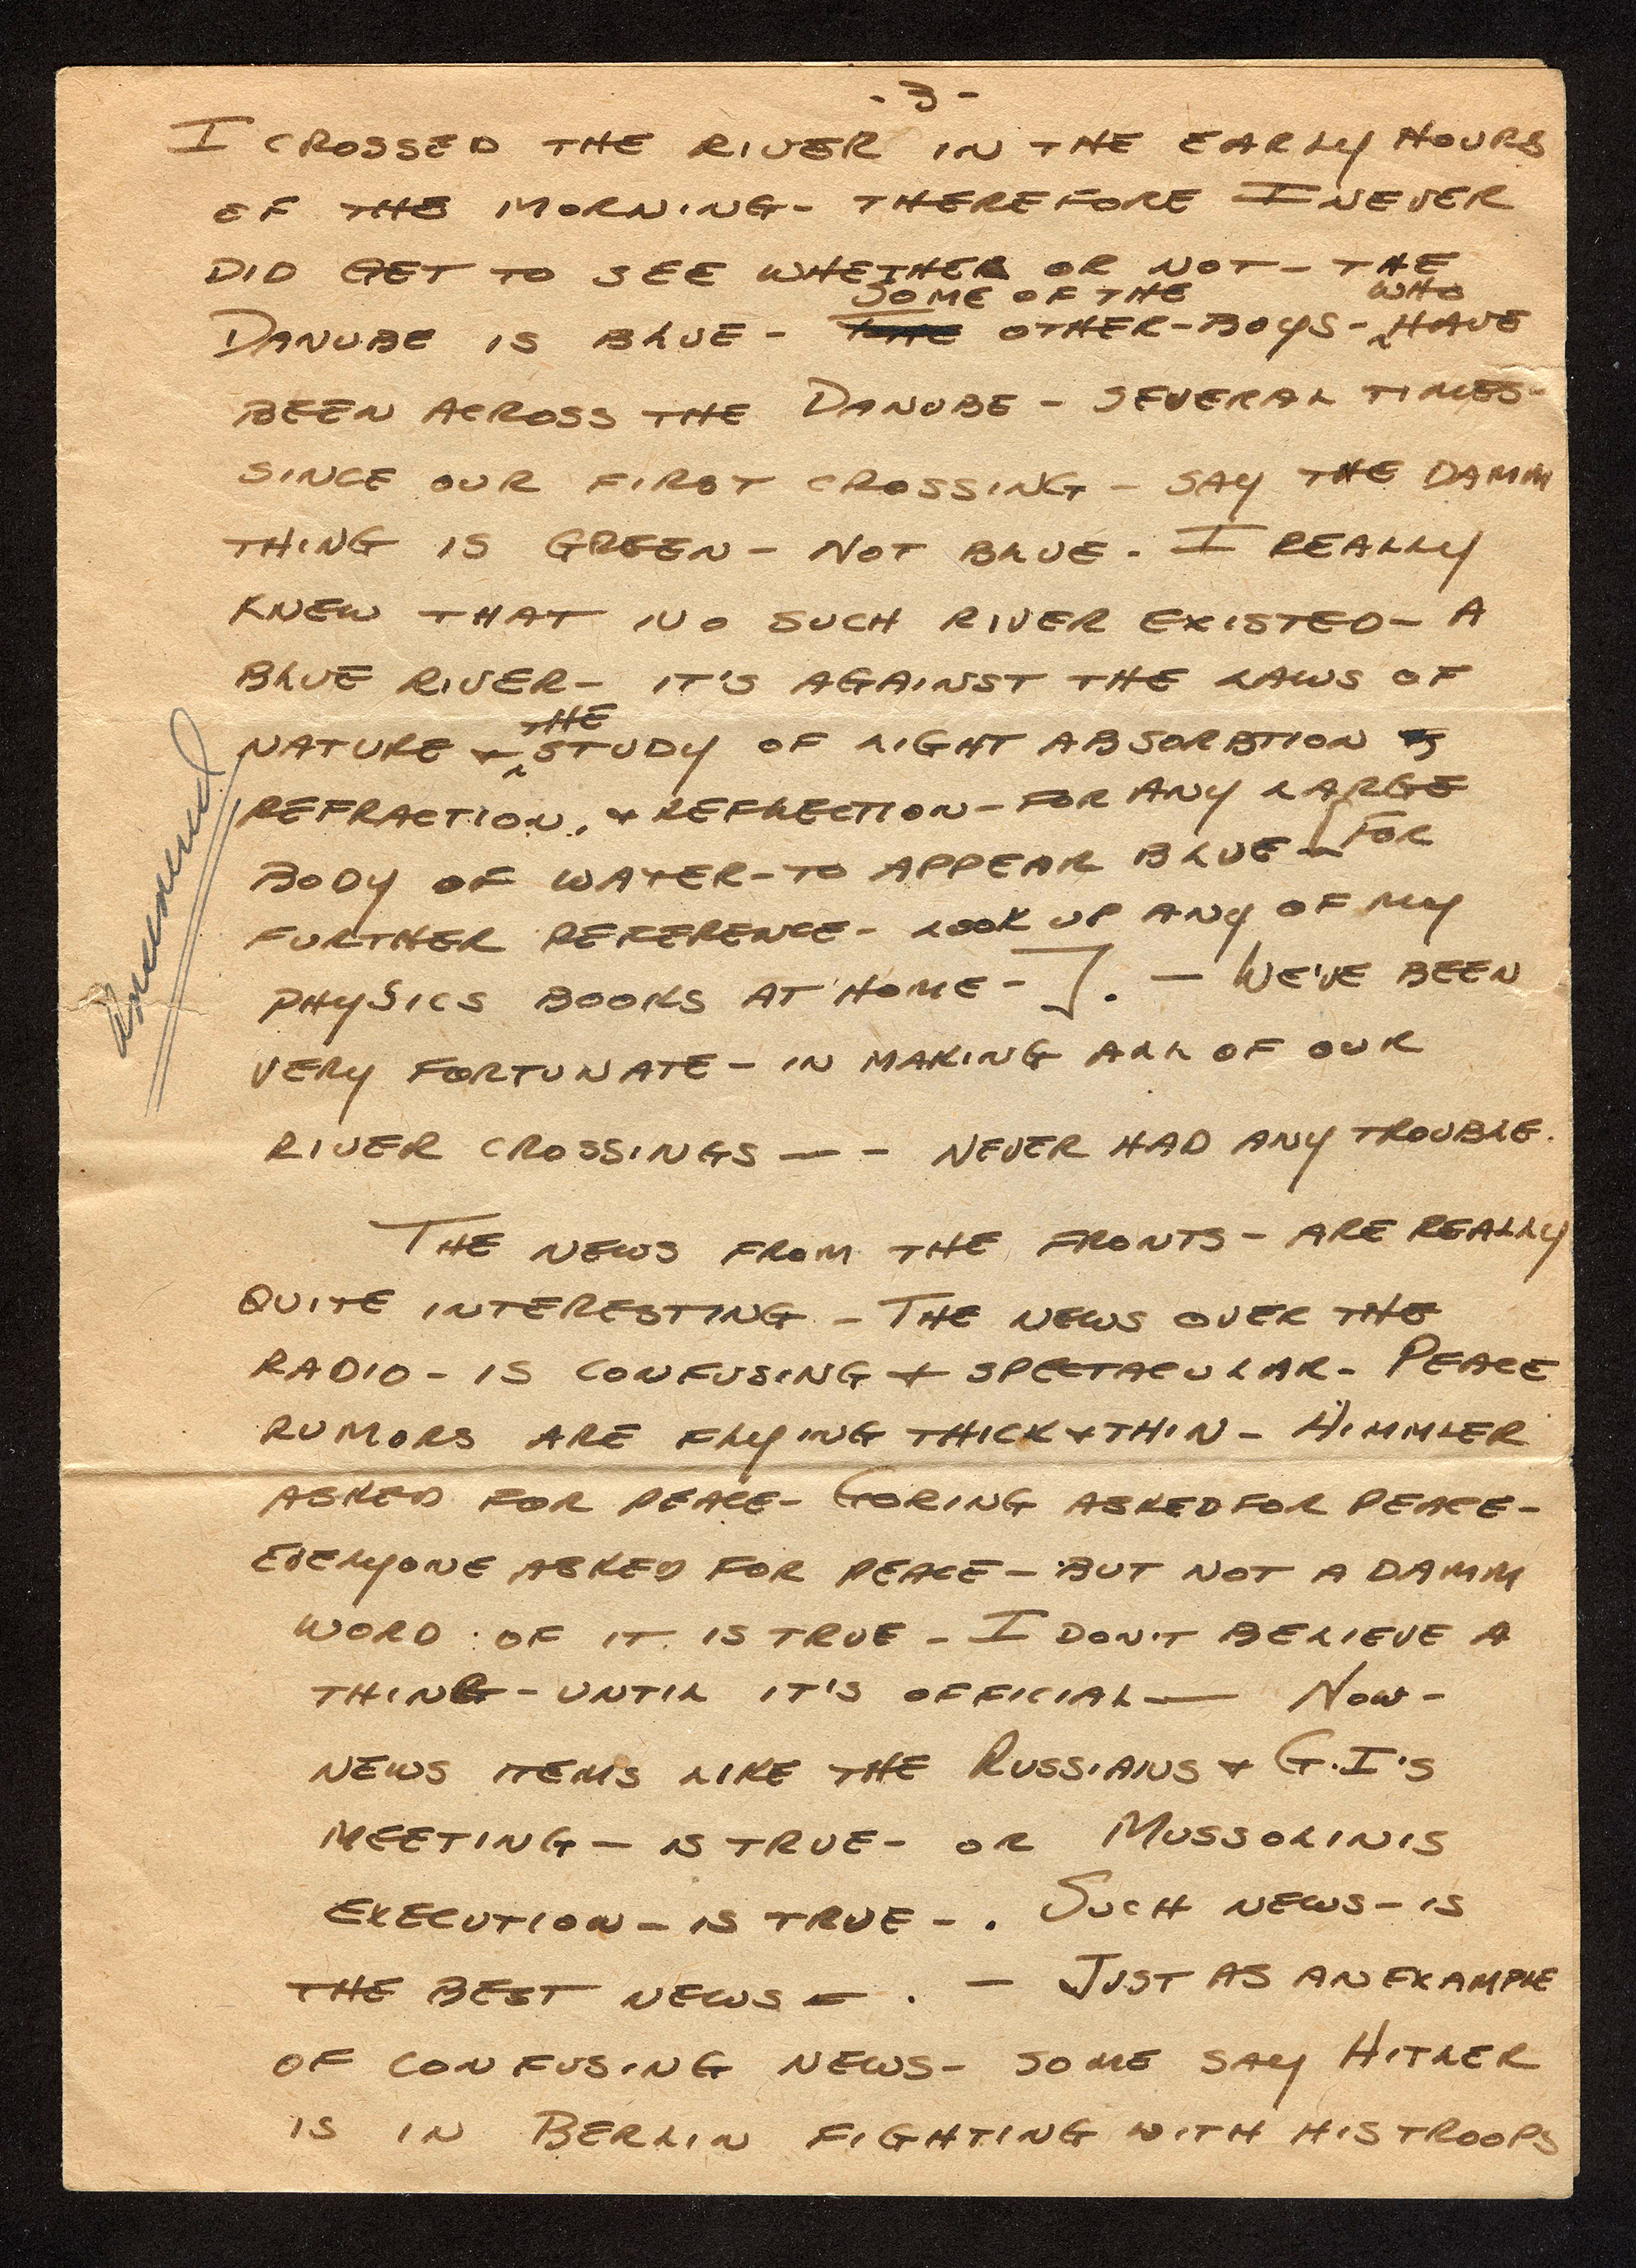 - 3 -
I CROSSED THE RIVER IN THE EARLY HOURS
OF THE MORNING - THEREFORE I NEVER
DID GET TO SEE WHETHER OR NOT - THE
SOME OF THE WHO
DANUBE IS BLUE - OTHER - BOYS - HAVE
BEEN ACROSS THE DANUBE - SEVERAL TIMES -
SINCE OUR FIRST CROSSING - SAY THE DAMM
THING IS GREEN - NOT BLUE. I REALLY
KNEW THAT NO SUCH RIVER EXISTED - A
BLUE RIVER - IT'S AGAINST THE LAWS OF
THE
NATURE & STUDY OF LIGHT ABSORBTION
REFRACTION, & REFLECTION - FOR ANY LARGE
BODY OF WATER - TO APPEAR BLUE - [FOR
FURTHER REFERENCE - LOOK UP ANY OF MY
PHYSICS BOOKS AT HOME - ]. - WE'VE BEEN
VERY FORTUNATE - IN MAKING ALL OF OUR
RIVER CROSSINGS - - NEVER HAD ANY TROUBLE.
THE NEWS FROM THE FRONTS - ARE REALLY
QUITE INTERESTING - THE NEWS OVER THE
RADIO - IS CONFUSING & SPECTACULAR - PEACE
RUMORS ARE FLYING THICK & THIN - HIMMLER
ASKED FOR PEACE - GORING ASKED FOR PEACE -
EVERYONE ASKED FOR PEACE - BUT NOT A DAMM
WORD OF IT IS TRUE - I DON'T BELIEVE A
THING - UNTIL IT'S OFFICIAL - NOW -
NEWS ITEMS LIKE THE RUSSIANS & G.I'S
MEETING - IS TRUE - OR MUSSOLINIS
EXECUTION - IS TRUE - . SUCH NEWS - IS
THE BEST NEWS - . - JUST AS AN EXAMPLE
OF CONFUSING NEWS - SOME SAY HITLER
IS IN BERLIN FIGHTING WITH HIS TROOPS